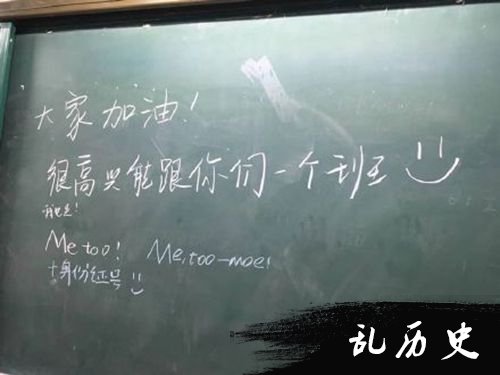 大家加油!
很高兴能跟你们一个班
我也是!
Me too! Me, too-moe!
+身份证号
乱历史